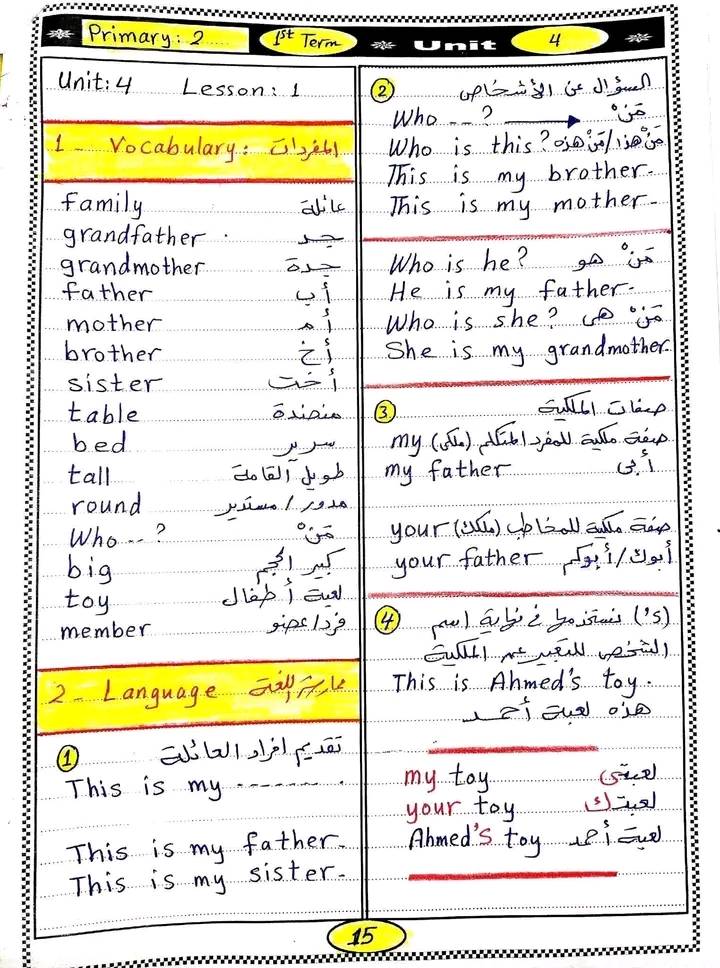 Primary: 2
1st Term
Unit
4
Unit: 4 Lesson: 1
1 - Vocabulary: المفردات
family عائلة
grandfather جد
grandmother جدة
father أب
mother أم
brother أخ
sister أخت
table منضدة
bed سرير
tall طويل القامة
round مدور / مستدير
Who -- ? مَنْ
big كبير الحجم
toy لعبة أطفال
member فرد/عضو
2 - Language ممارسة اللغة
1 تقديم افراد العائلة
This is my -------- .
This is my father.
This is my sister.
2 السؤال عن الأشخاص
Who -- ? مَنْ
Who is this? مَنْ هذا/مَنْ هذه
This is my brother.
This is my mother.
Who is he? مَنْ هو
He is my father.
Who is she? مَنْ هى
She is my grandmother.
3 صفات الملكية
my (ملكى) صفة ملكية للمفرد المتكلم
my father أبى
your (ملكك) صفة ملكية للمخاطب
your father أبوك/أبوكم
4 ('s) نستخدمها في نهاية اسم
الشخص للتعبير عن الملكية
This is Ahmed's toy.
هذه لعبة أحمد
my toy لعبتى
your toy لعبتك
Ahmed's toy لعبة أحمد
15